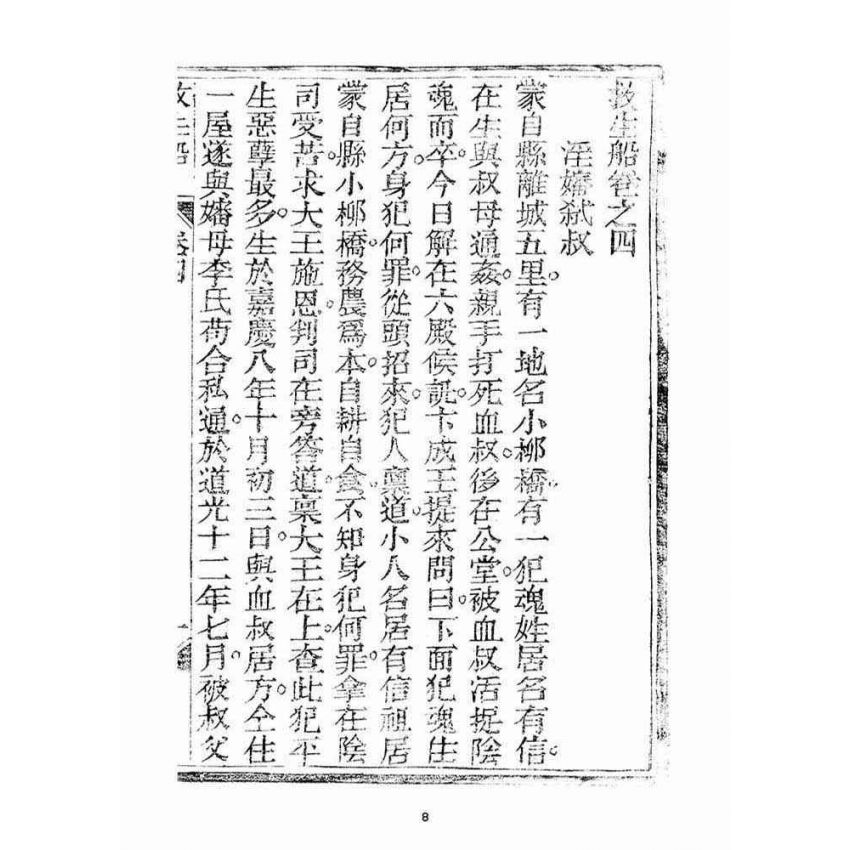 救生船卷之四
淫嬸弒叔
蒙自縣離城五里。有一地名小柳橋。有一犯魂姓居名有信。
在生與叔母通姦。親手打死血叔。後在公堂。被血叔活捉陰
魂而卒。今日解在六殿候訊。卞成王提來問曰。下面犯魂住
居何方。身犯何罪。從頭招來。犯人稟道。小人名居有信。祖居
蒙自縣小柳橋。務農爲本。自耕自食。不知身犯何罪。拿在陰
司受苦。求大王施恩。判司在旁答道。稟大王在上。查此犯平
生惡孽最多。生於嘉慶八年十月初三日。與血叔居方。仝住
一屋。遂與嬸母李氏苟合私通。於道光十二年七月。被叔父
救生船 卷四
8